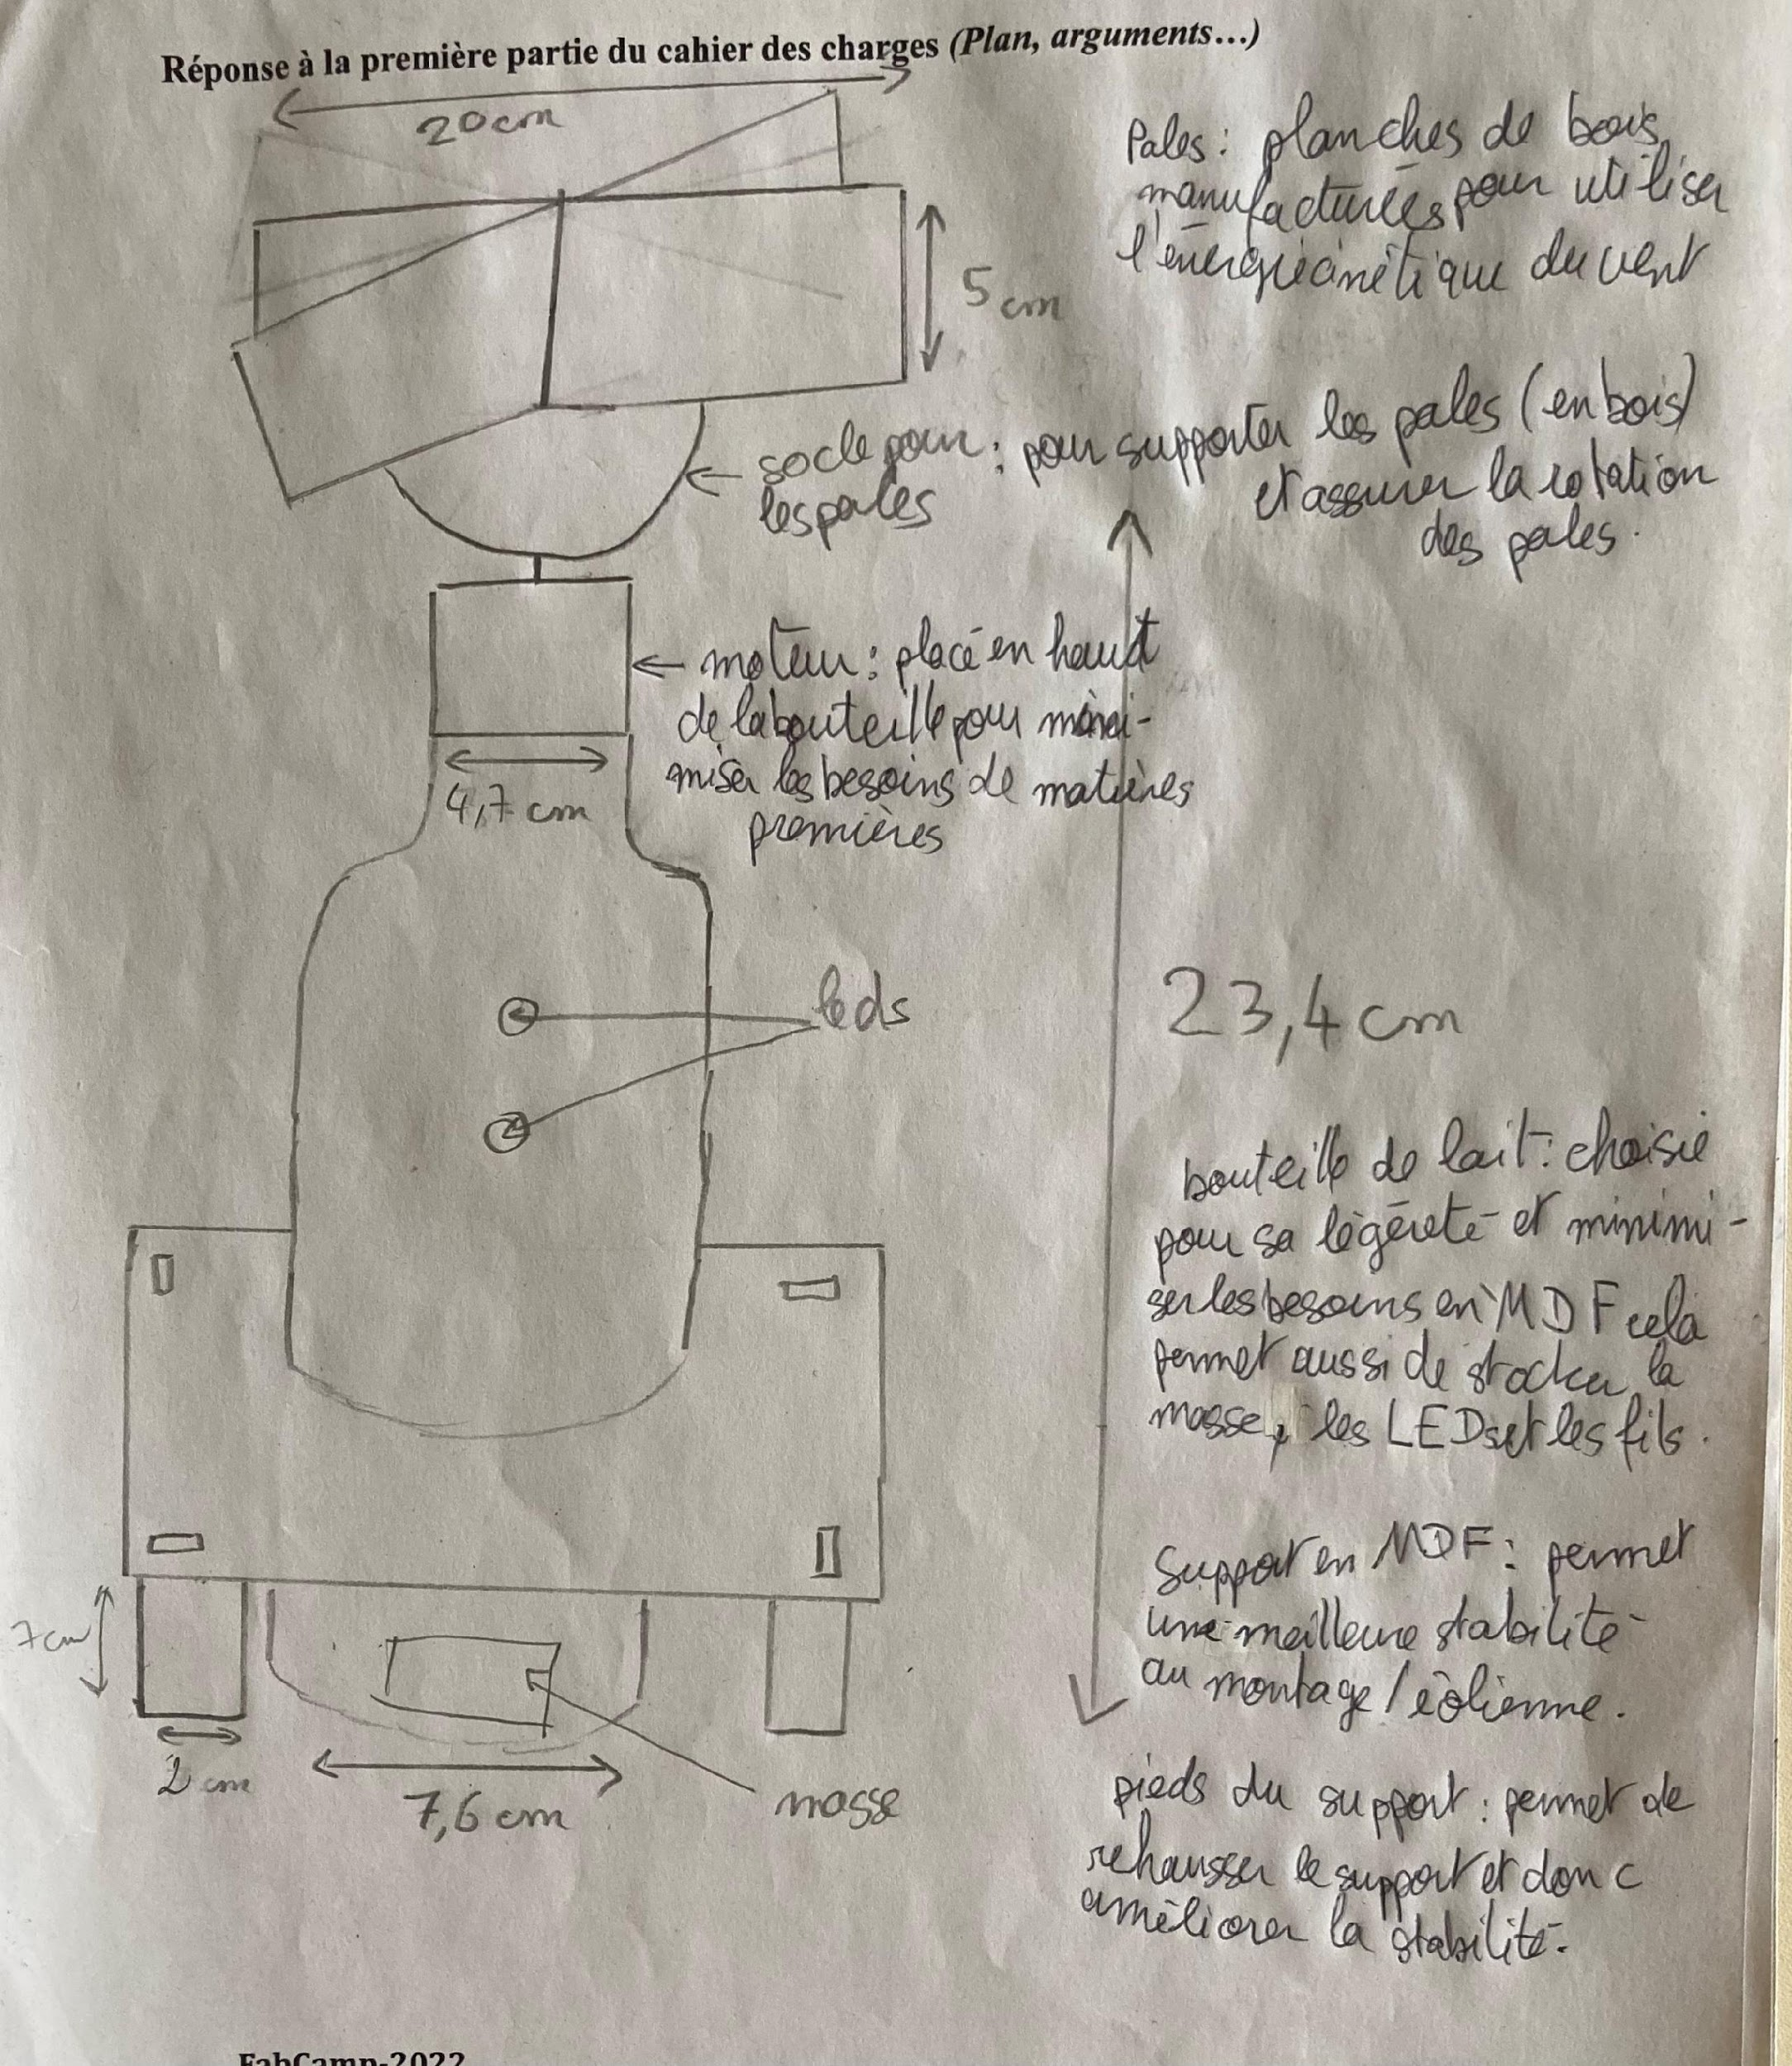 Réponse à la première partie du cahier des charges (Plan, arguments...)
20cm
Pales : planches de bois
manufacturées pour utiliser
l'énergie cinétique du vent
5 cm
socle pour : pour supporter les pales (en bois)
les pales
et assurer la rotation
des pales.
moteur : placé en haut
de la bouteille pour mini-
miser les besoins de matières
premières
4,7 cm
leds
23,4 cm
bouteille de lait : choisie
pour sa légéreté et minimi-
ser les besoins en MDF cela
permet aussi de stocker la
masse, les LEDs et les fils.
Support en MDF : permet
une meilleure stabilité
au montage / éolienne.
7cm
2 cm
7,6 cm
masse
pieds du support : permet de
rehausser le support et donc
améliorer la stabilité.
FabCamp-2022